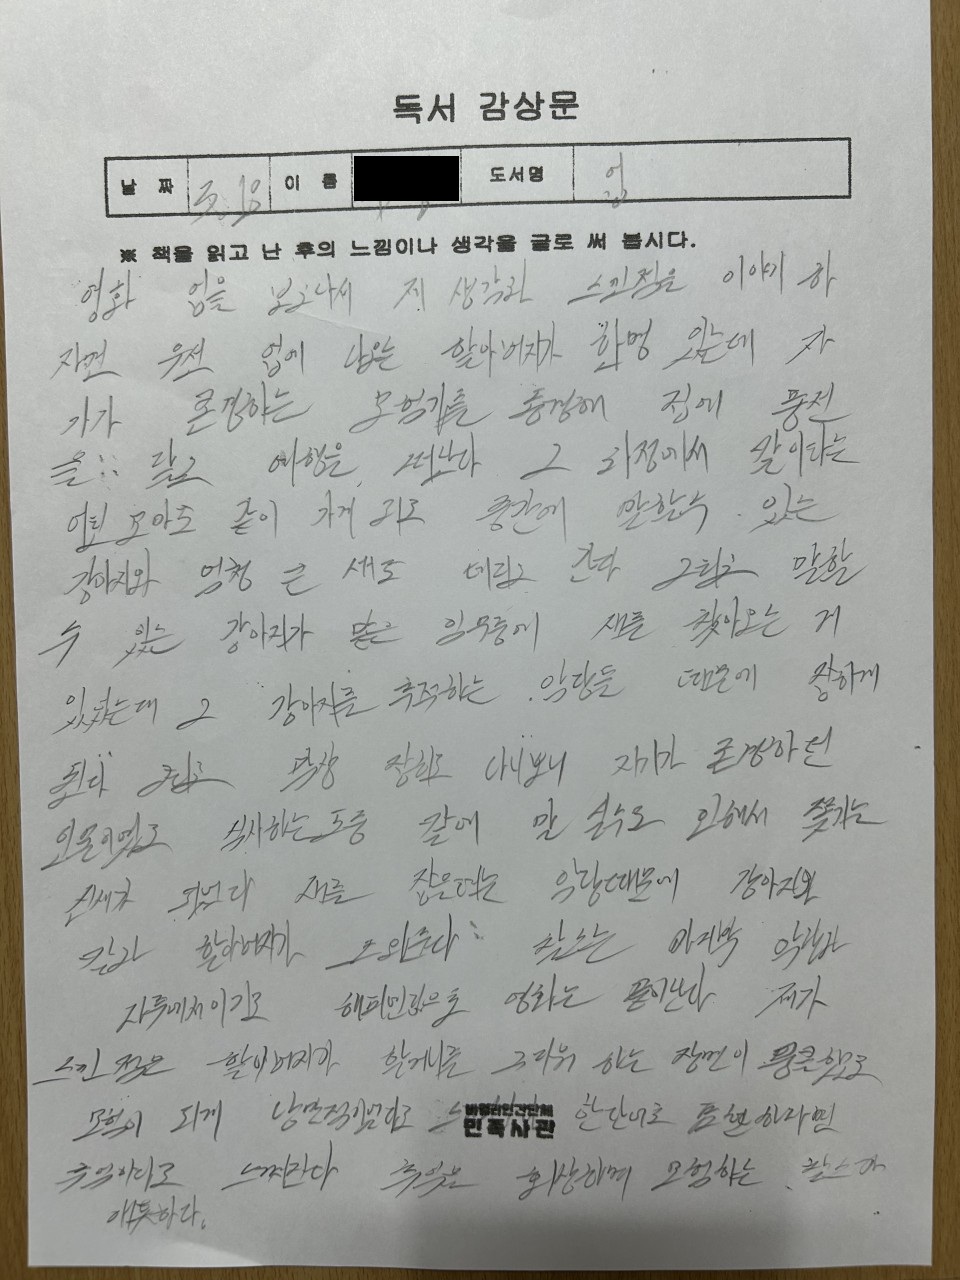 독서 감상문
날 짜 이 름 도서명 업
※ 책을 읽고 난 후의 느낌이나 생각을 글로 써 봅시다.
영화 업을 보고나서 제 생각과 느낀점을 이야기 하
자면 우선 업에 나오는 할아버지가 한명 있는데 자
기가 존경하는 모험가를 동경해 집에 풍선
을 달고 여행을 떠난다 그 과정에서 같이타는
어린 꼬마도 같이 가게 되고 중간에 말할수 있는
강아지와 엄청 큰 새도 데리고 간다 그리고 말할
수 있는 강아지가 맡은 임무중에 새를 찾아오는 게
있었는데 그 강아지를 추적하는 악당들 때문에
된다 그리고 대장 나니보니 자기가 존경하던
인물이였고 식사하는도중 칼에 말 실수로 인해서 쫓기는
신세가 되었다 새를 잡을려는 악당때문에 강아지와
할아버지가 도와준다 마지막 악당과
자투에서이기고 해피엔딩으로 영화는 끝이난다 제가
느낀 점은 할아버지가 할머니를 그리워 하는 장면이 뭉클했고
모험이 되게 낭만적이었고 한단어로 표현하자면
추억이라고 느껴진다 추억은 회상하며 모험하는
애틋하다.
바름터인간단체
민족사관